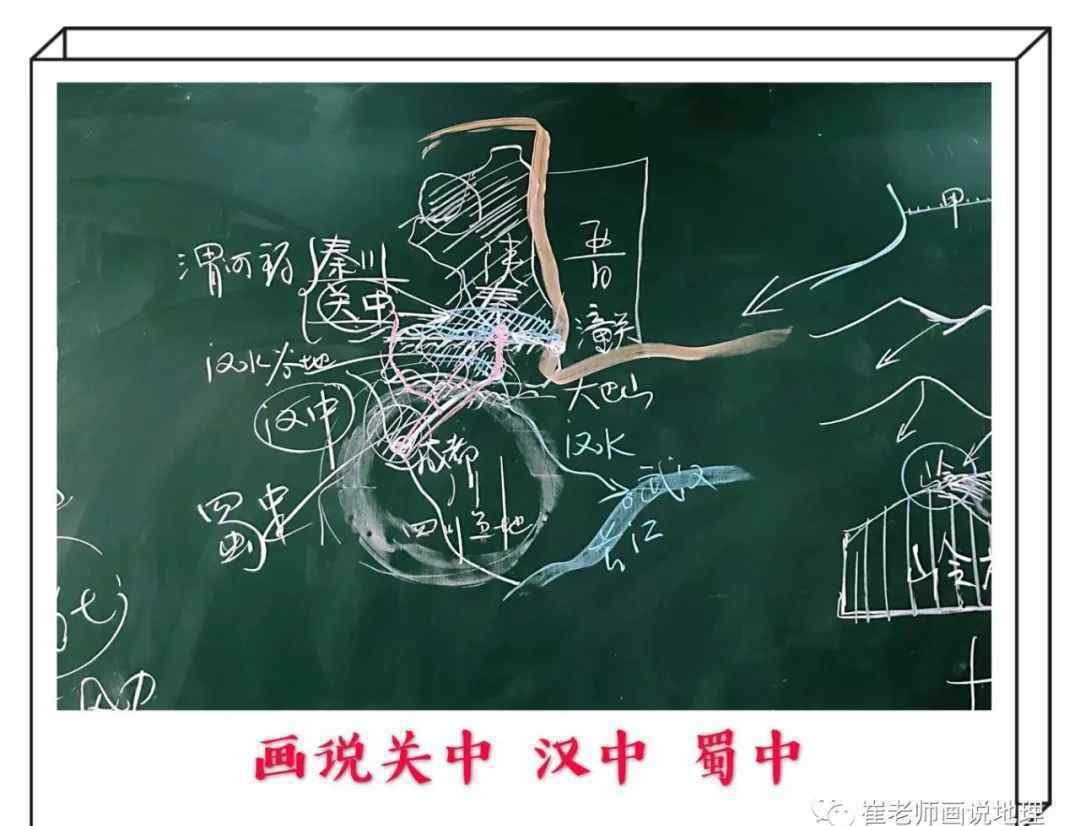 甲
渭河 秦川
关中
陕
秦
晋
潼关
汉水谷地
大巴山
汉中
汉水
成都
武汉
蜀中
四川盆地
长江
画说关中 汉中 蜀中
崔老师画说地理